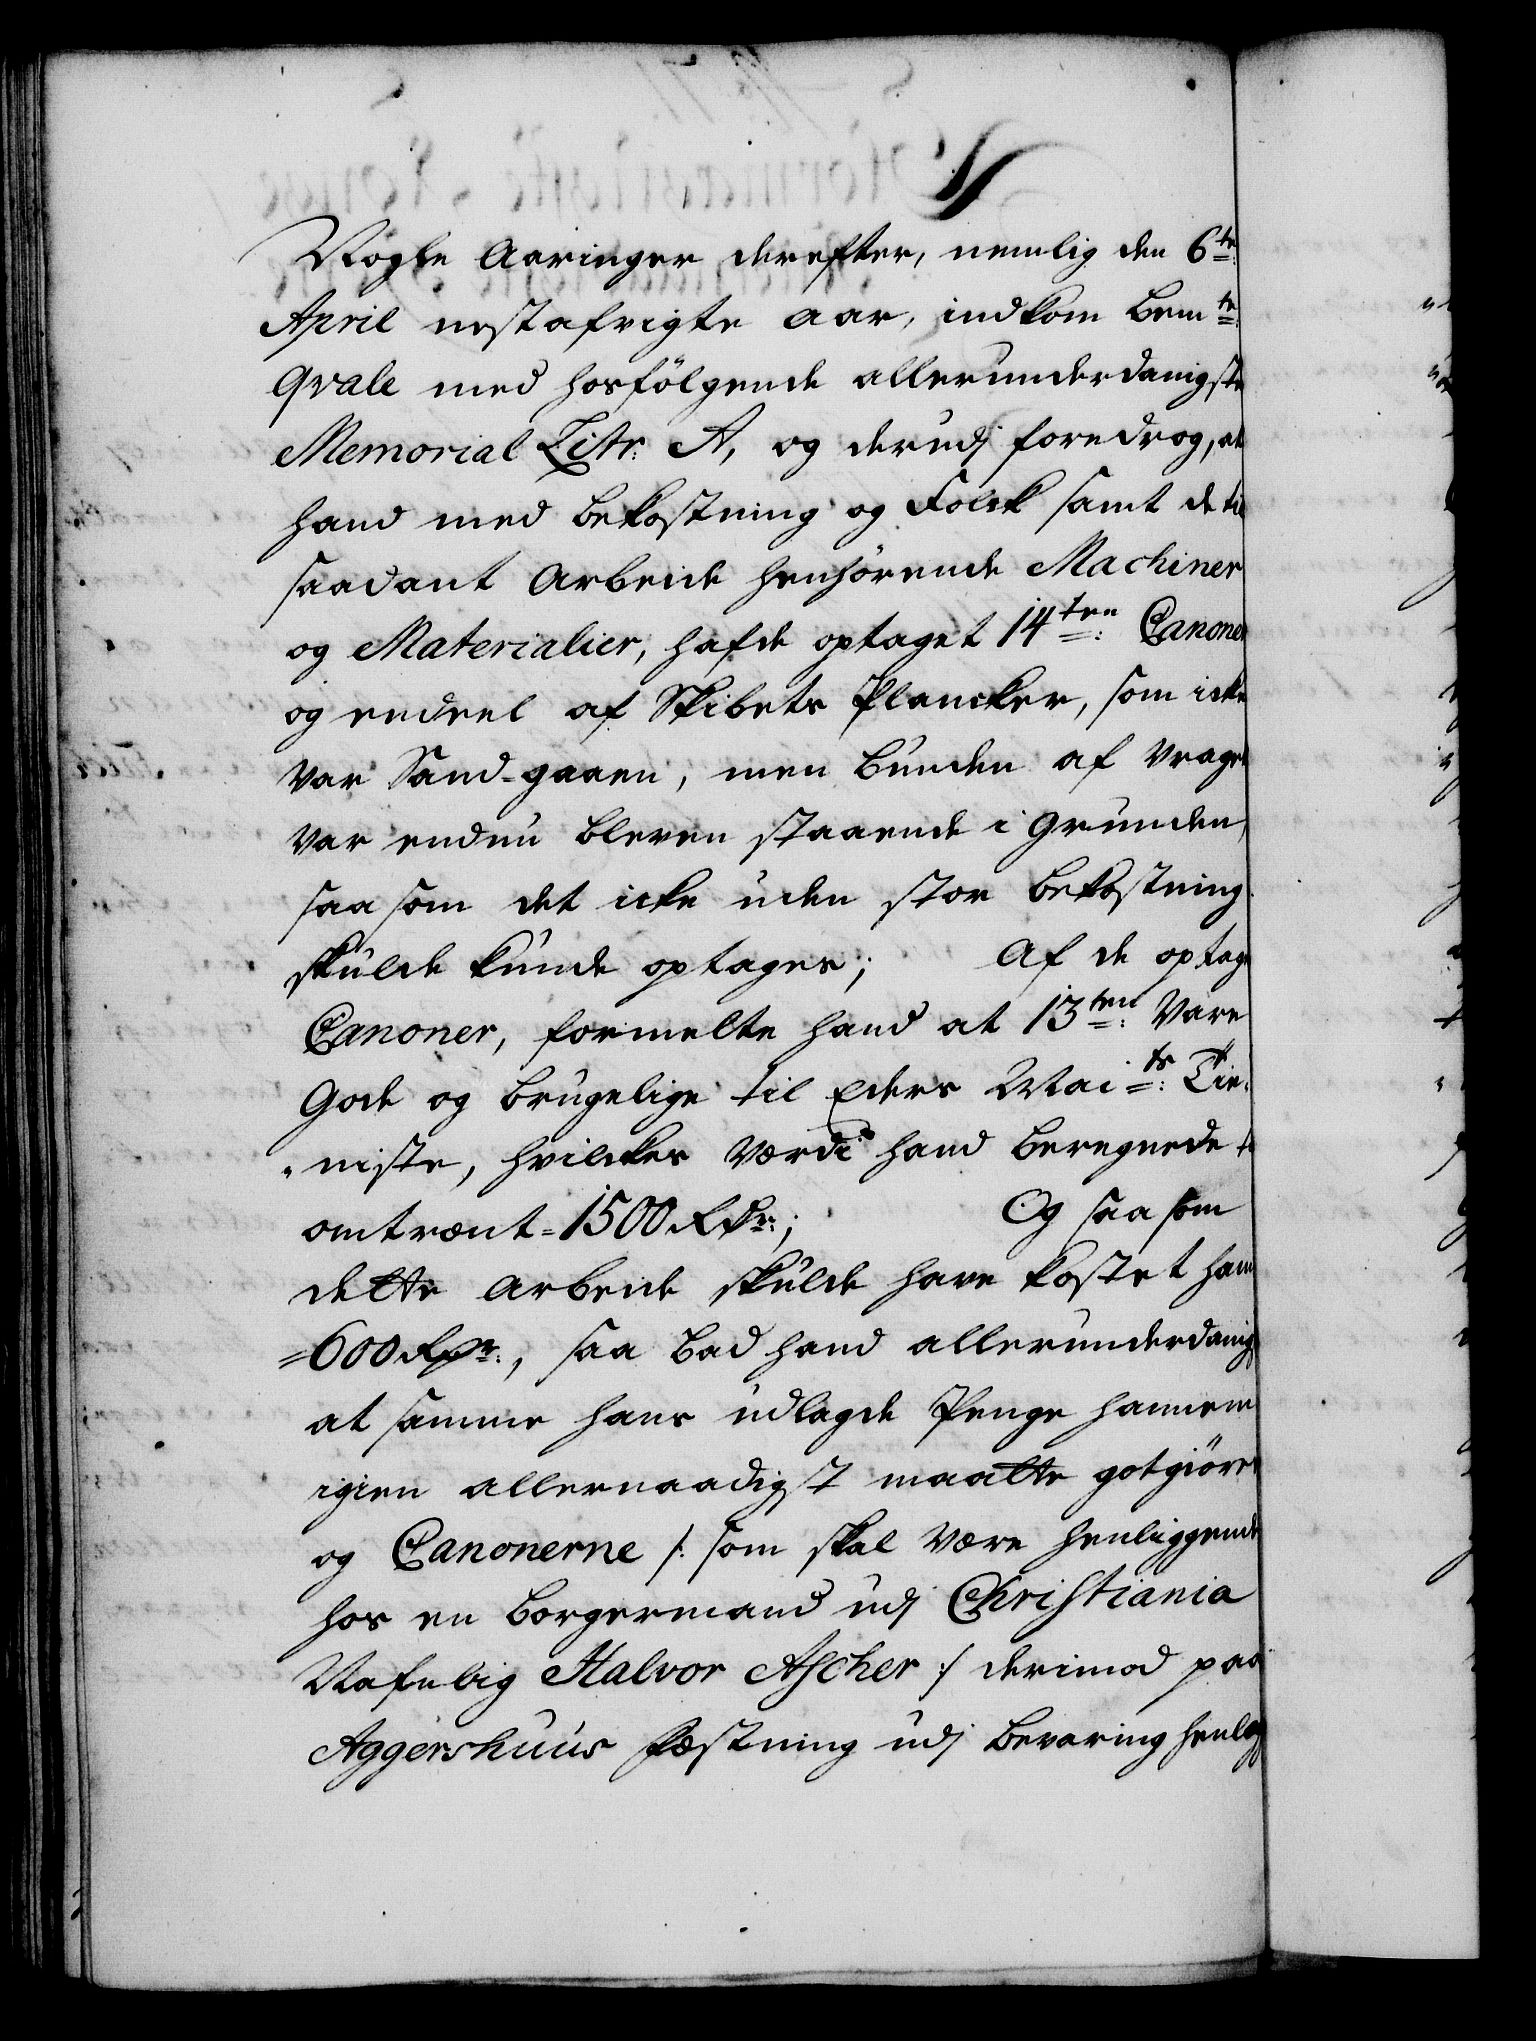 Nogle Aaringer derefter, nemlig den 6te:
April nestafvigte aar, indkom Bemte:
Qvale med hosfölgende allerunderdanigste
Memorial Litr: A, og derudj foredrog, at
hand med bekostning og Folck samt de til
saadant Arbeide henhörende Machiner
og Materialier, hafde optaget 14ten: Canoner
og endeel af Skibets Plancker, som icke
var Sand-gaaen, men Bunden af Vraget
var endnu bleven staaende i Grunden,
saasom det icke uden stor bekostning
skulde kunde optages; Af de optag
Canoner, formelte hand at 13ten: Vare
Gode og brugelige til Eders Maits: Tie-
niste, hvilckes Værdi hand beregnede t
omtrænt =1500 Rdr:; Og saasom
dette Arbeide skulde have kostet ham
=600 Rdr:, saa bad hand allerunderdanig
at samme hans udlagde Penge hannem
igien allernaadigst maatte gotgiöres
og Canonerne /: som skal være henliggende
hos en borgermand udj Christiania
Nafnlig Halvor Ascher :/ derimod paa
Aggershuus Fæstning udj bevaring henleg